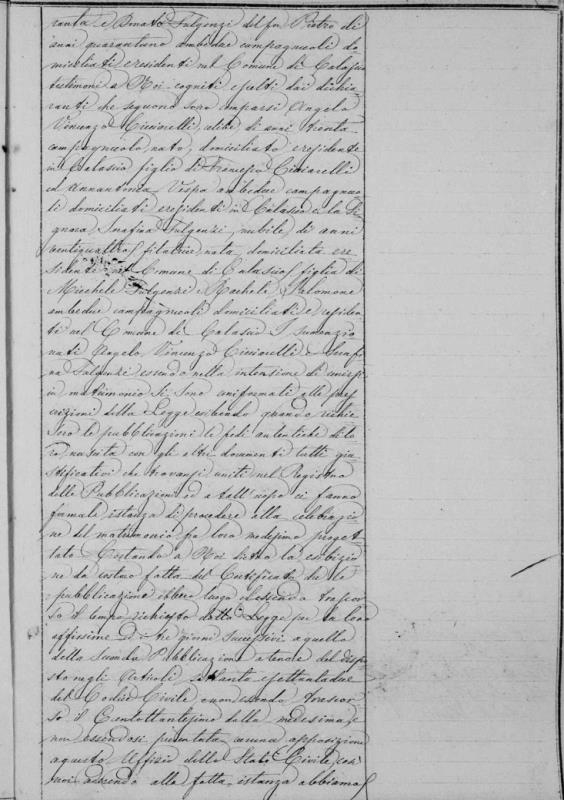 ranta e Donato Fulgenzi del fu Pietro di
anni quarantuno ambedue campagnuoli do
miciliati e residenti nel Comune di Calascio
testimoni a Noi cogniti e scelti dai dichia
ranti che seguono sono comparsi Angelo
Vincenzo Ciccorelli, celibe di anni trenta
campagnuolo, nato, domiciliato e residente
in Calascio figlio di Francesco
ed Annantonia Vespa ambedue campagnuo
li domiciliati e residenti in Calascio e la Si
gnora Serafina Fulgenzi, nubile di anni
ventiquattro filatrice nata, domiciliata e re
sidente nel Comune di Calascio figlia di
Michele Fulgenzi e Rachele Palomone
ambedue campagnuoli domiciliati e residen
ti nel Comune di Calascio I summenzio
nati Angelo Vincenzo e Serafi
na Fulgenzi essendo nella intensione di unirsi
in matrimonio si sono uniformati alle pres
crizioni della Legge esibendo quando richie
sero le pubblicazioni le fedi autentiche di lo
ro nascita con gli altri documenti tutti giu
stificativi che trovansi uniti nel Registro
delle Pubblicazioni ed a tall'uopo ci fanno
formale istanza di procedere alla celebrazio
ne del matrimonio fra loro medesimi proget
tato Costando a Noi dietro la esibizio
ne da costoro fatta del Certificato che le
pubblicazioni ebbero luogo essendo trascor
so il tempo richiesto dalla Legge per la loro
affissione ed i tre giorni successivi a quello
della Seconda Pubblicazione a tenore del dispo
sto negli Articoli settanta e settantadue
del Codice Civile e non essendo trascor
so il Centottantesimo dalla medesima, e
non essendosi presentata alcuna opposizione
a questo Uffizio dello Stato Civile, così
noi aderendo alla fatta istanza abbiamo